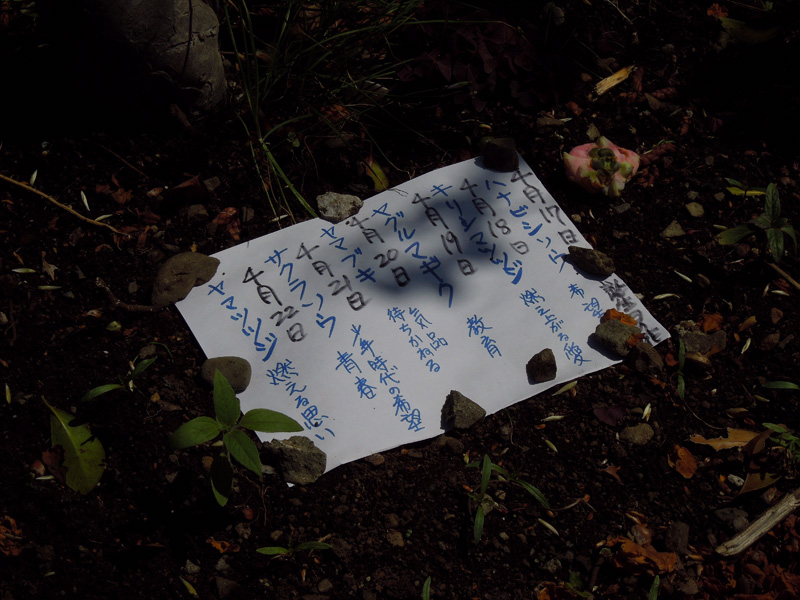 4月17日
ハナビシソウ 希望
4月18日
キリシマツツジ 燃え上がる愛
4月19日
ヤグルマギク 教育
4月20日
ヤマブキ 気品
待ちかねる
4月21日
サクラソウ 少年時代の希望
青春
4月22日
ヤマツツジ 燃える思い